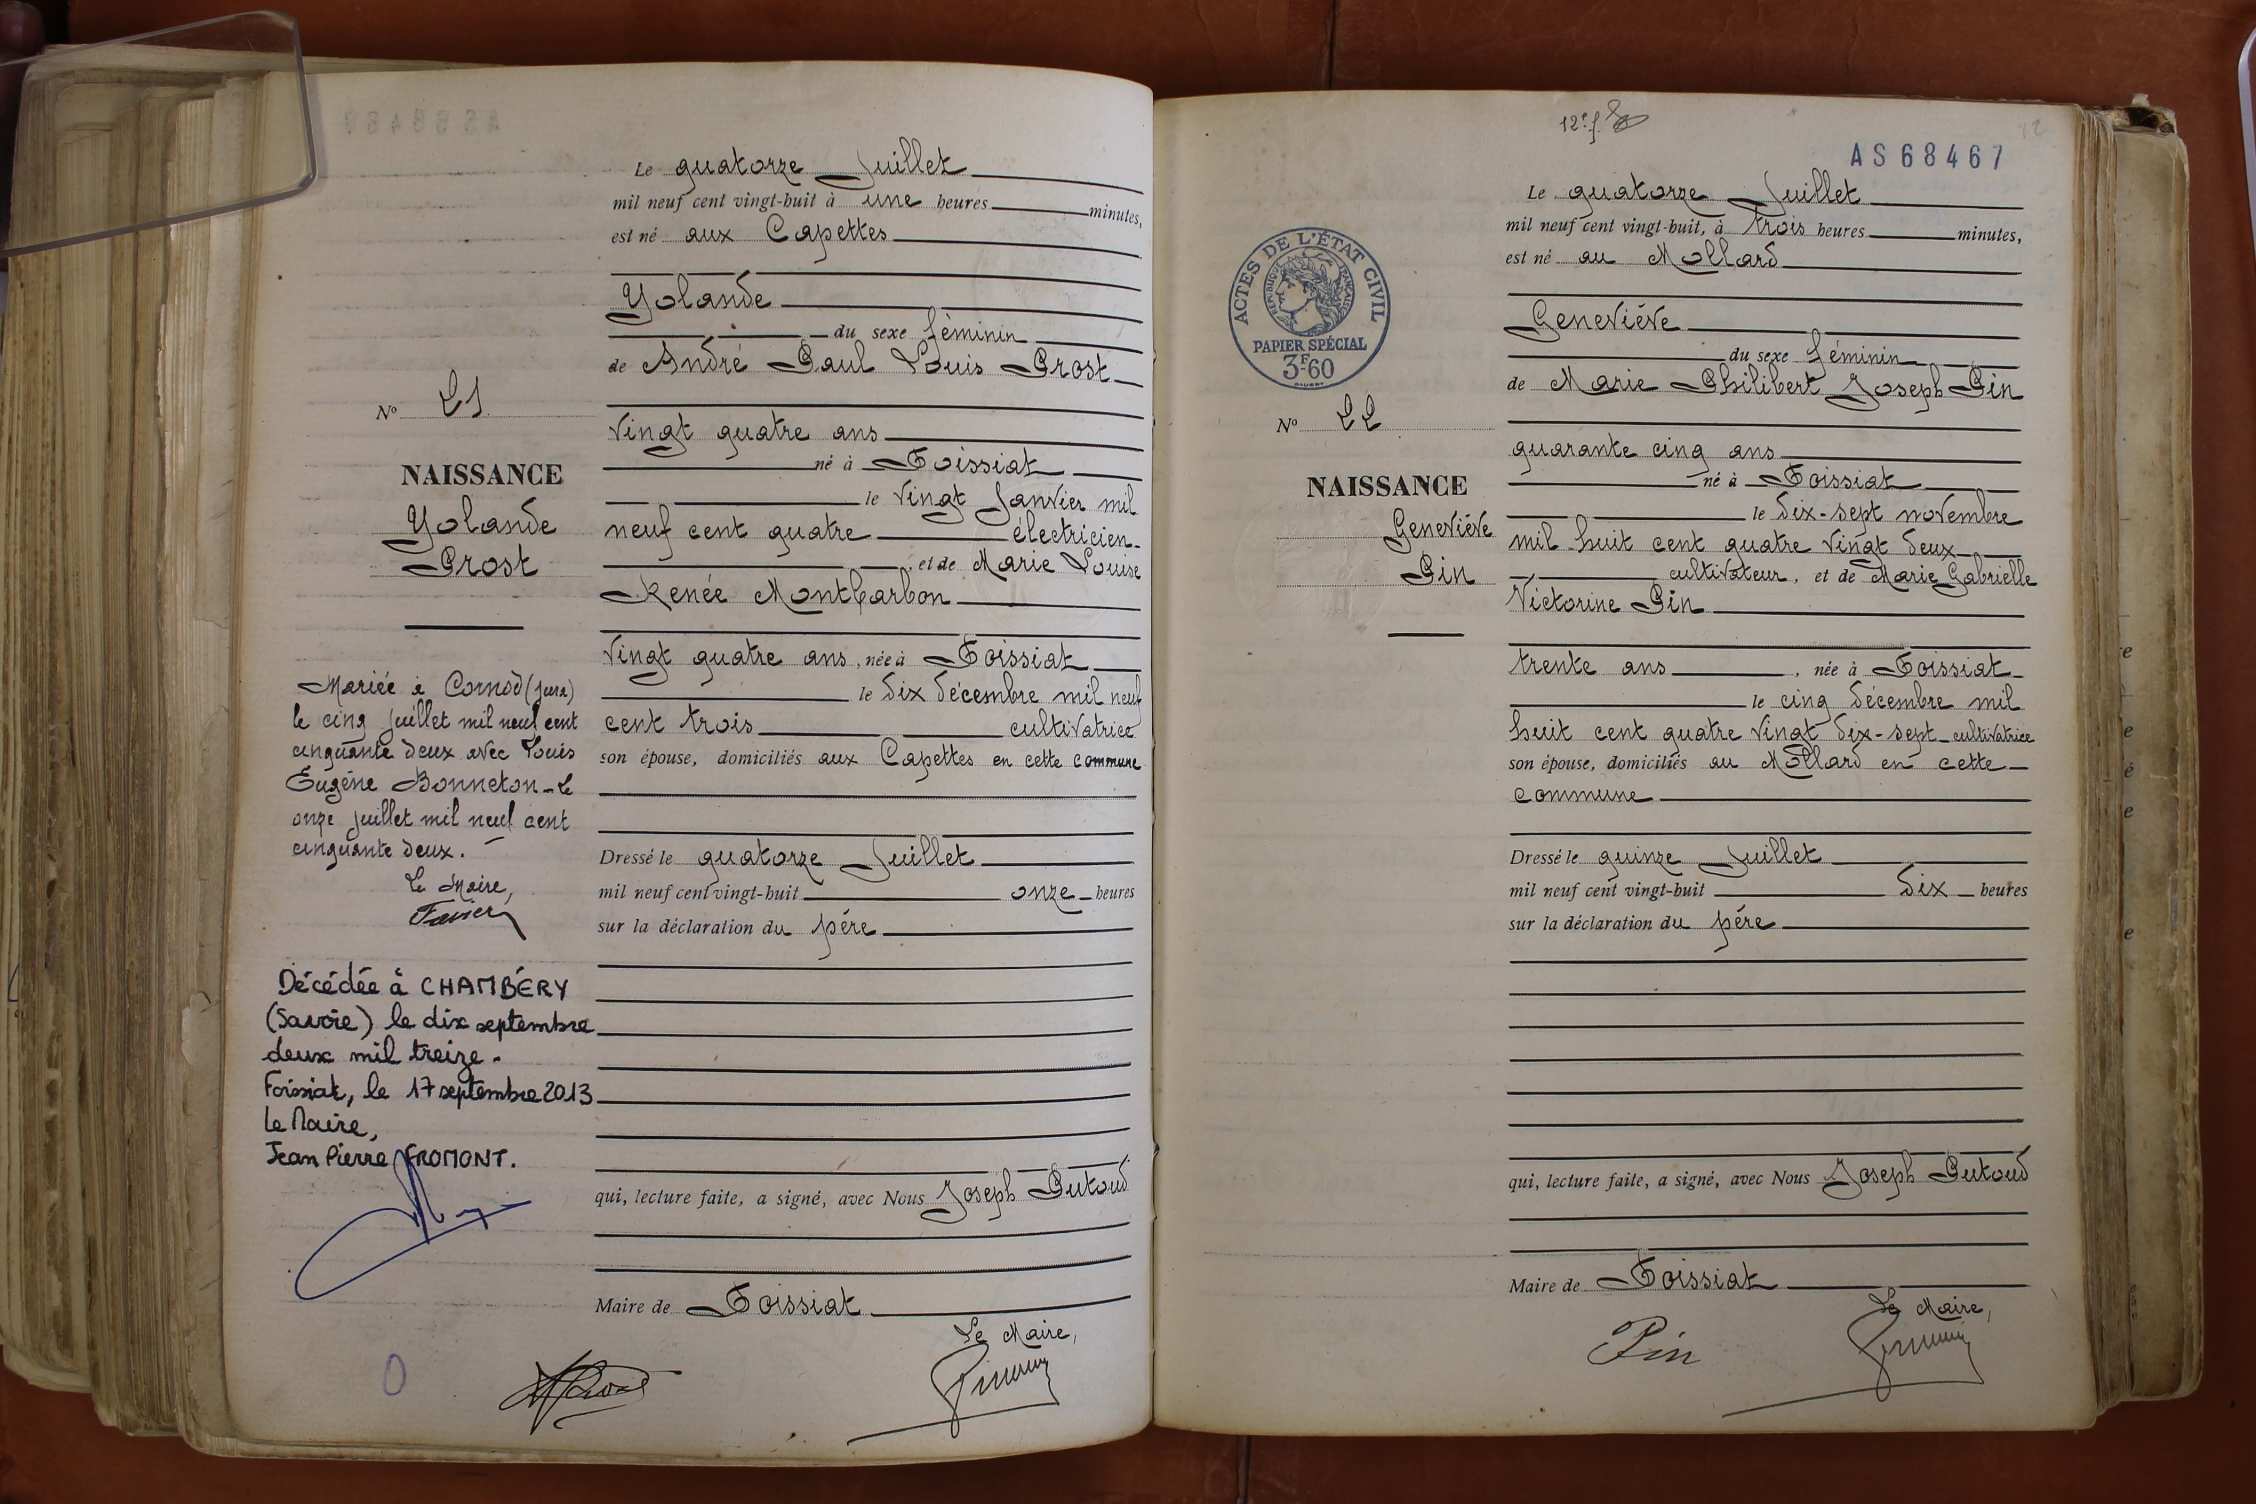 Le quatorze Juillet
mil neuf cent vingt-huit à une heures minutes,
est né aux Capettes
Yolande
du sexe féminin
de André Paul Louis Prost
N° 21
vingt quatre ans
NAISSANCE
né à Foissiat
le vingt Janvier mil
Yolande
neuf cent quatre électricien
Prost
, et de Marie Louise
Renée Montbarbon
vingt quatre ans, née à Foissiat
le dix décembre mil neuf
cent trois cultivatrice
son épouse, domiciliés aux Capettes en cette commune
Mariée à Cornod (Jura)
le cinq juillet mil neuf cent
cinquante deux avec Louis
Eugène Bonneton - le
onze juillet mil neuf cent
cinquante deux.
Le Maire,
Favier
Dressé le quatorze Juillet
mil neuf cent vingt-huit onze heures
sur la déclaration du père
Décédée à CHAMBÉRY
(Savoie) le dix septembre
deux mil treize.
Foissiat, le 17 septembre 2013
Le Maire,
Jean Pierre FROMONT.
qui, lecture faite, a signé, avec Nous Joseph Putoud
Maire de Foissiat
Le Maire,
12e f.
AS68467
12
Le quatorze Juillet
mil neuf cent vingt-huit, à trois heures minutes,
est né au Mollard
ACTES DE L'ÉTAT CIVIL
RÉPUBLIQUE FRANÇAISE
PAPIER SPÉCIAL
3F60
Geneviéve
du sexe féminin
de Marie Philibert Joseph Pin
N° 22
quarante cinq ans
NAISSANCE
né à Foissiat
le dix-sept novembre
Geneviéve
Pin
mil huit cent quatre vingt deux
cultivateur, et de Marie Gabrielle
Victorine Pin
trente ans, née à Foissiat
le cinq décembre mil
huit cent quatre vingt dix-sept cultivatrice
son épouse, domiciliés au Mollard en cette
commune
Dressé le quinze Juillet
mil neuf cent vingt-huit dix heures
sur la déclaration du père
qui, lecture faite, a signé, avec Nous Joseph Putoud
Maire de Foissiat
Le Maire,
Pin